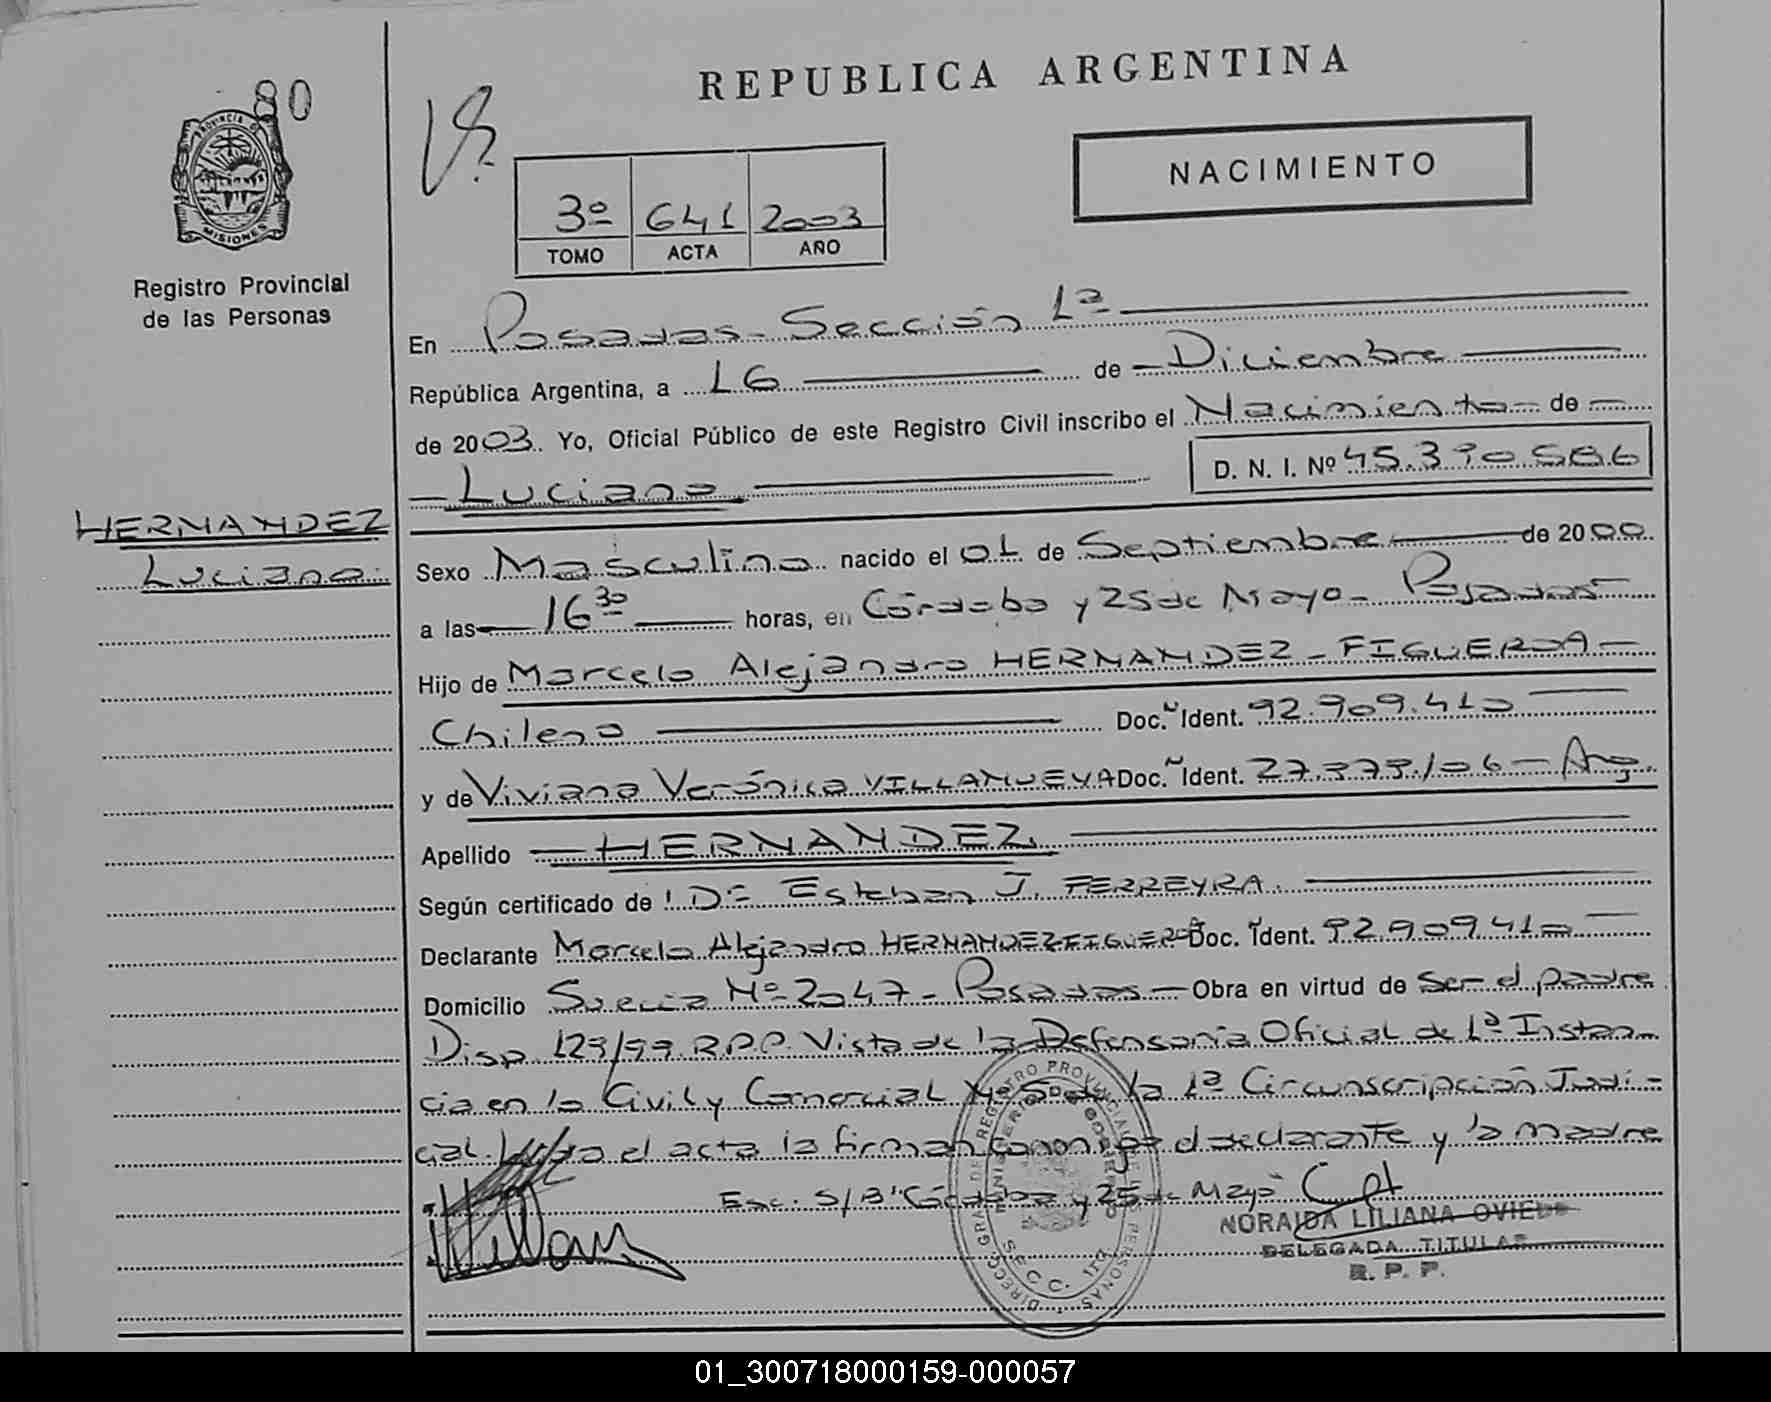 80
REPUBLICA ARGENTINA
NACIMIENTO
3º 641 2003
TOMO ACTA AÑO
PROVINCIA DE
MISIONES
Registro Provincial
de las Personas
En Posadas - Sección 1ª
República Argentina, a 16 de Diciembre
de 2003. Yo, Oficial Público de este Registro Civil inscribo el Nacimiento de
Luciano D. N. I. Nº 45.390.586
HERNANDEZ
Luciano
Sexo Masculino nacido el 01 de Septiembre de 2000.
a las 16 30 horas, en Córdoba y 25 de Mayo - Posadas
Hijo de Marcelo Alejandro HERNANDEZ - FIGUEROA -
Chileno Doc. Ident. 92.909.410
y de Viviana Verónica VILLANUEVA Doc. Ident. 27.373.106 - Arg.
Apellido HERNANDEZ
Según certificado de Dr. Esteban J. FERREYRA.
Declarante Marcelo Alejandro HERNANDEZ FIGUEROA Doc. Ident. 92.909.410
Domicilio Suecia Nº 2047 - Posadas - Obra en virtud de ser el padre
Disp. 129/99 R.P.P. Vista de la Defensoría Oficial de 1ª Instan-
cia en lo Civil y Comercial Nº 5 de la 1ª Circunscripción Judi-
cial. el acta la firman el declarante y la madre
Esc. S/B "Córdoba y 25 de Mayo"
NORAIDA LILIANA OVIEDO
DELEGADA TITULAR
R. P. P.
DIRECC. GRAL. DE REGISTRO PROVINCIAL DE PERSONAS
MINISTERIO DE GOBIERNO
SECC. 1ra
01_300718000159-000057